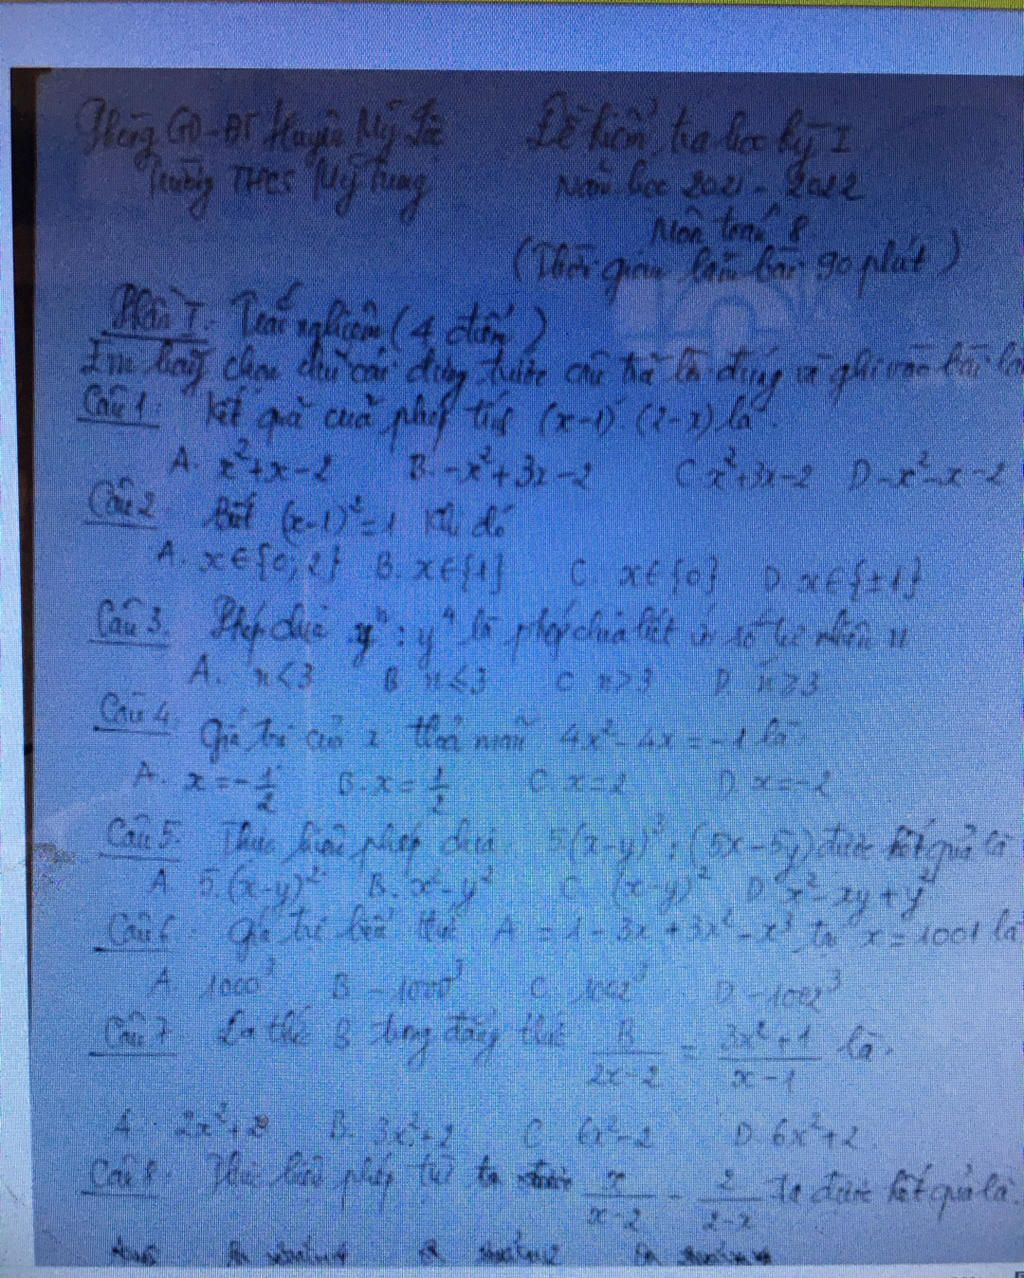 Phòng GD-ĐT Huyện Mỹ Lộc
Trường THCS Mỹ Trung
Đề kiểm tra học kỳ I
Năm học 2021 - 2022
Môn toán 8
(Thời gian làm bài 90 phút)
Phần I: Trắc nghiệm (4 điểm)
Em hãy chọn chữ cái đứng trước câu trả lời đúng và ghi vào bài là
Câu 1: Kết quả của phép tính (x-1).(2-x) là
A. x²+x-2 B. -x²+3x-2 C. x²+3x-2 D. -x²-x-2
Câu 2 Biết (x-1)²=1 Khi đó
A. x∈{0;2} B. x∈{1} C. x∈{0} D. x∈{±1}
Câu 3. Phép chia yⁿ : y⁴ là phép chia hết số tự nhiên n
A. n<3 B. n≤3 C. n>3 D. n≥3
Câu 4. Giá trị của x thoả mãn 4x²-4x=-1 là
A. x=-1/2 B. x=1/2 C. x=2 D. x=-2
Câu 5. Thực hiện phép chia 5.(x-y)³:(5x-5y) được kết quả là
A. 5.(x-y)² B. x²-y² C. (x-y)² D. x²-xy+y²
Câu 6. Giá trị biểu thức A = 1-3x+3x²-x³ tại x=1001 là
A. 1000³ B. -1000³ C. 1002³ D. -1002³
Câu 7 Đa thức B trong đẳng thức B/(2x-2) = (3x²+1)/(x-1) là
A. 2x²+2 B. 3x²+2 C. 6x²-2 D. 6x²+2
Câu 8. Thực hiện phép x/(x-2) - 2/(2-x) ta được kết quả là